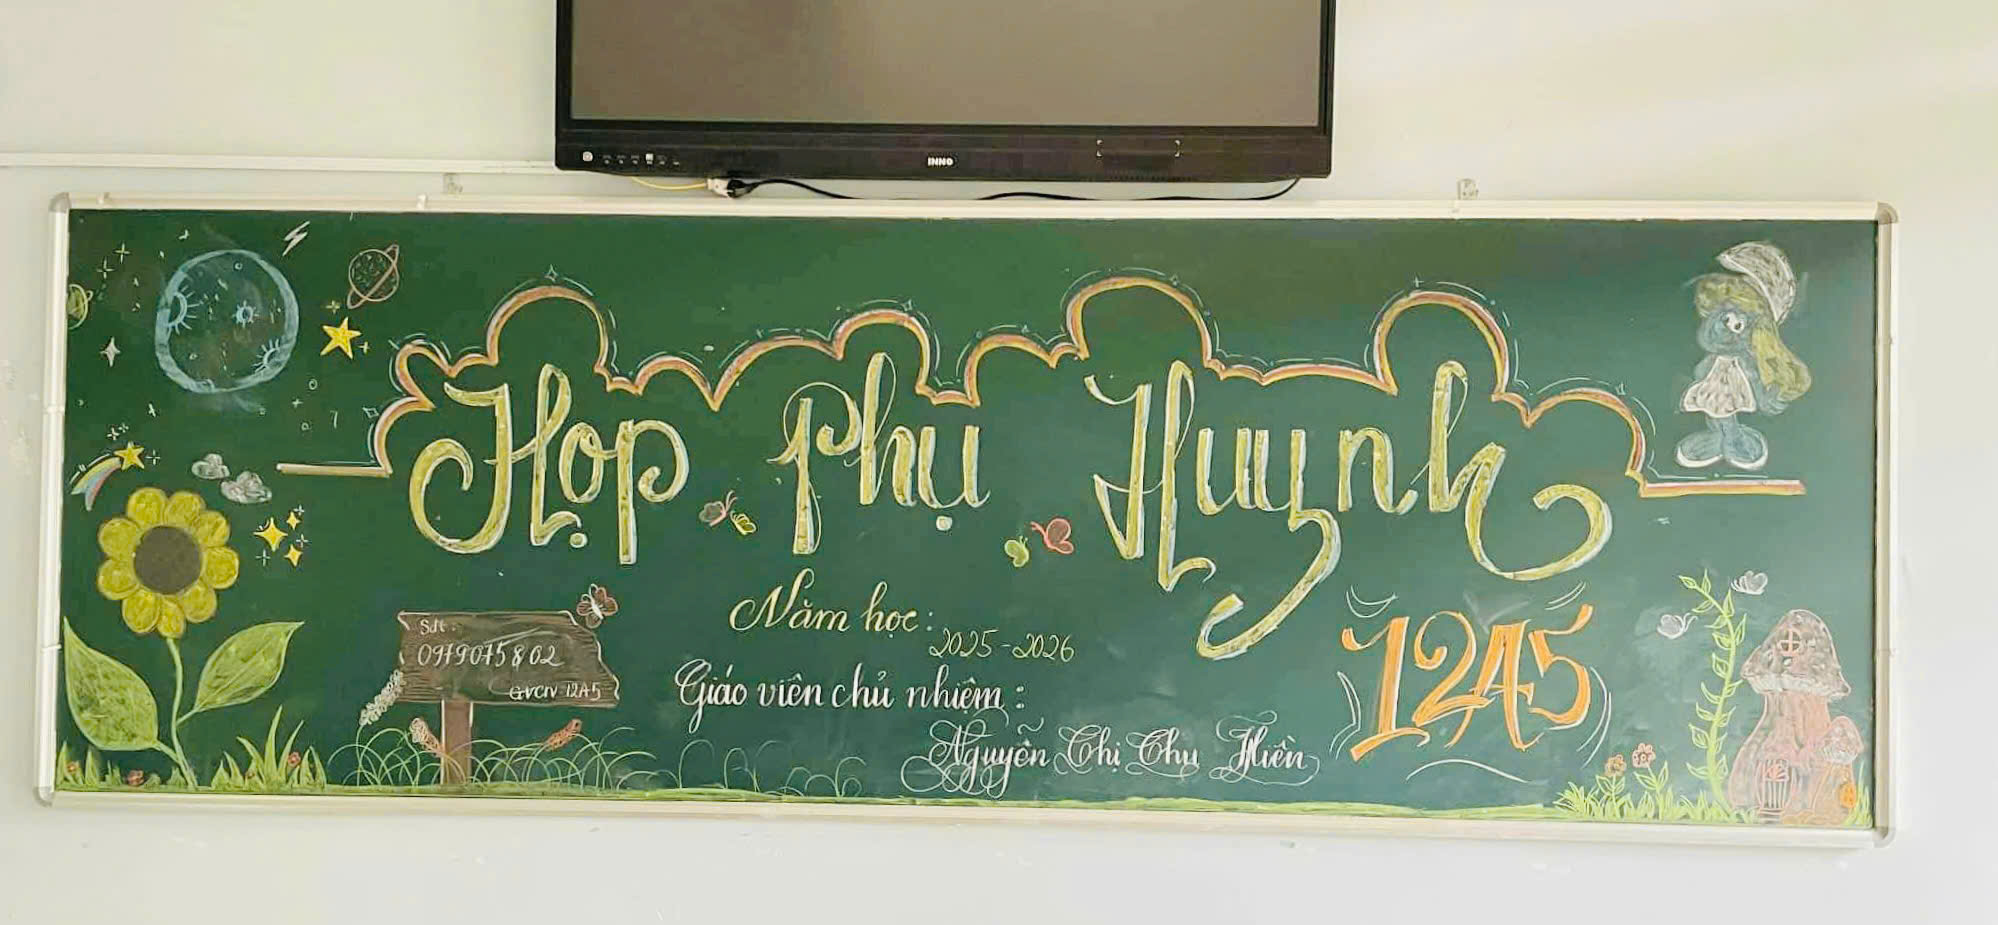 INNO
Họp Phụ Huynh
Năm học:
2025-2026
12A5
Sđt:
0979075802
GVCN 12A5
Giáo viên chủ nhiệm:
Nguyễn Thị Thu Hiền